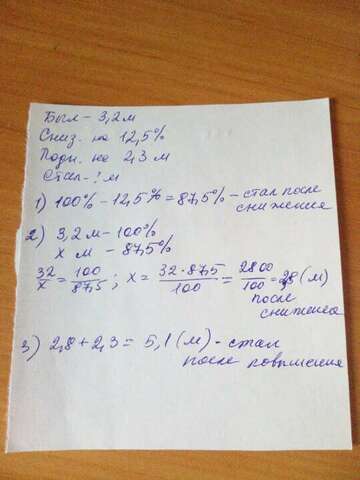 Был - 3,2 м
Сниз. на 12,5%
Подн. на 2,3 м
Стал - ? м
1) 100% - 12,5% = 87,5% - стал после
снижения
2) 3,2 м - 100%
х м - 87,5%
32/х = 100/87,5 ; х = 32·87,5/100 = 2800/100 = 28 (м)
после
снижения
3) 2,8 + 2,3 = 5,1 (м) - стал
после повышения